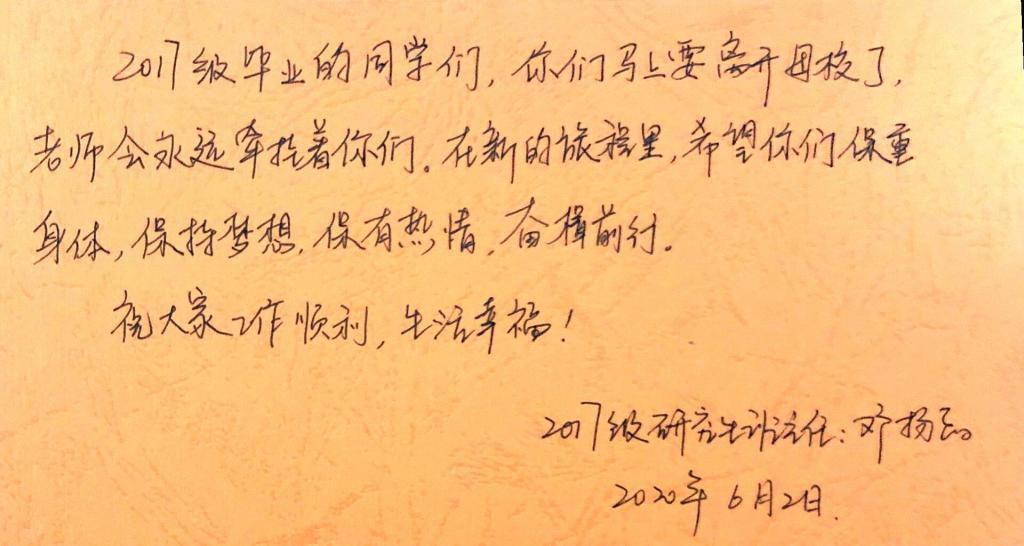 2017级毕业的同学们,你们马上要离开母校了,
老师会永远牵挂着你们。在新的旅程里,希望你们保重
身体,保持梦想,保有热情,奋楫前行。
祝大家工作顺利,生活幸福!
2017级研究生班主任:邓扬
2020年6月2日.